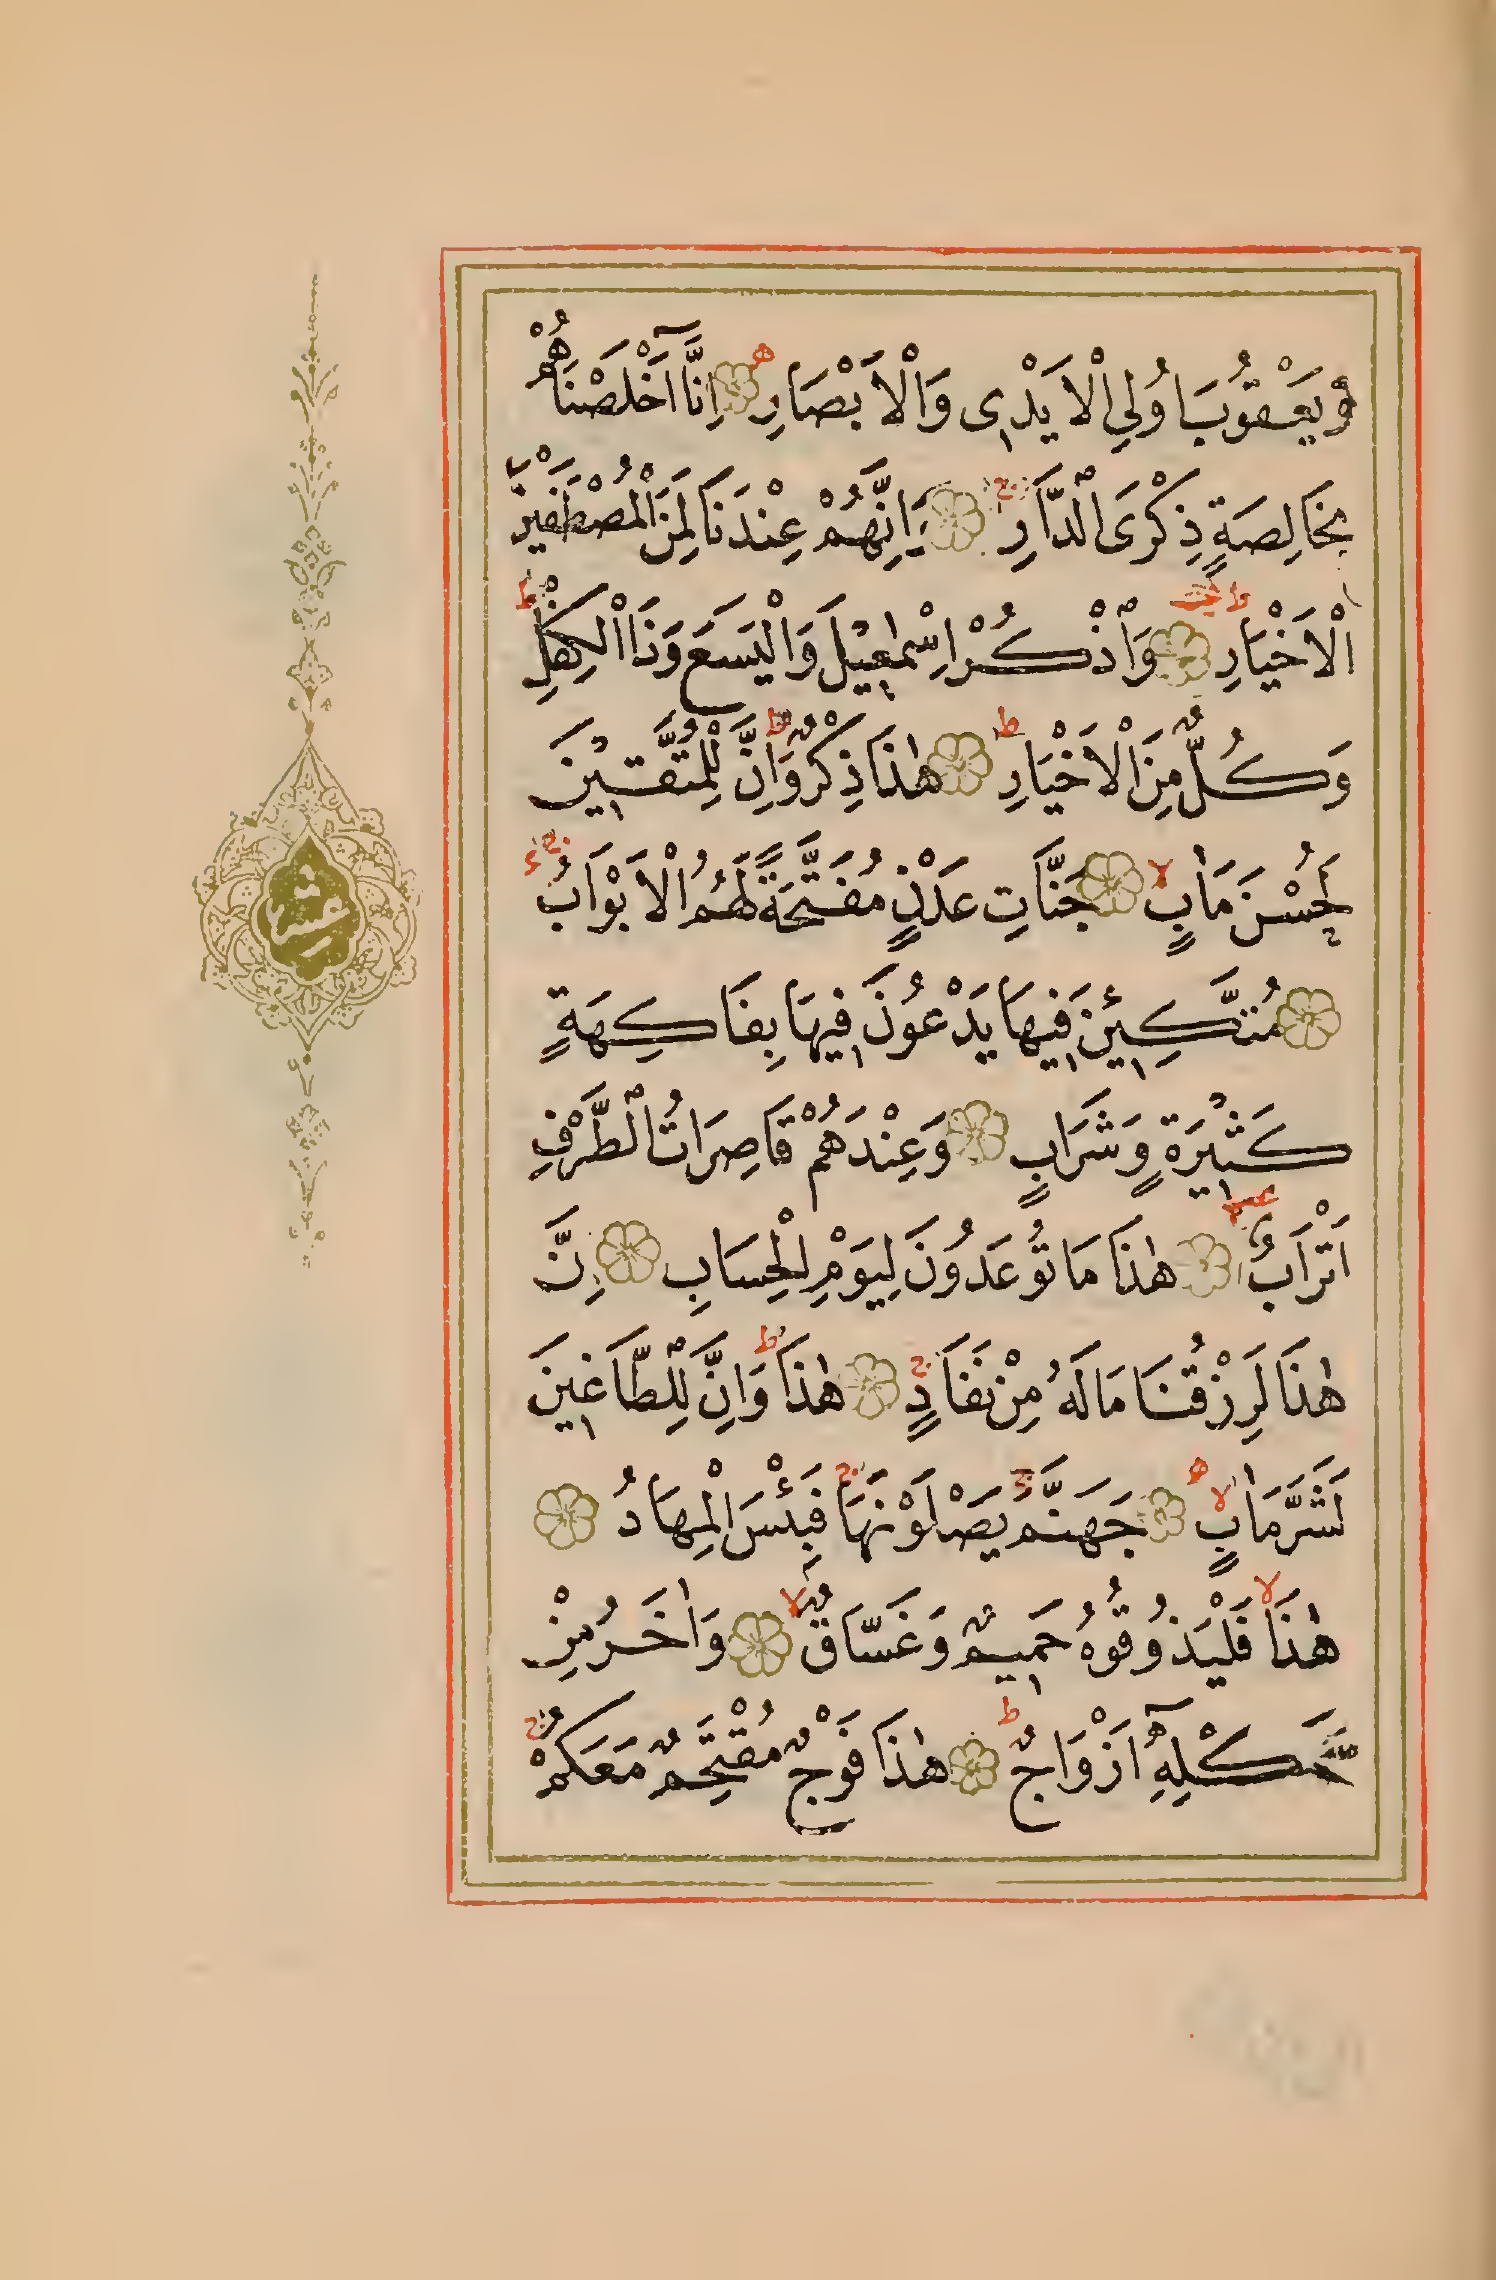 وَيَعْقُوبَ اُولِي الْاَيْدِي وَالْاَبْصَارِ ۝ اِنَّٓا اَخْلَصْنَاهُمْ
بِخَالِصَةٍ ذِكْرَى الدَّارِ ۝ وَاِنَّهُمْ عِنْدَنَا لَمِنَ الْمُصْطَفَيْنَ
الْاَخْيَارِ ۝ وَاذْكُرْ اِسْمٰعِيلَ وَالْيَسَعَ وَذَا الْكِفْلِ
وَكُلٌّ مِنَ الْاَخْيَارِ ۝ هٰذَا ذِكْرٌ وَاِنَّ لِلْمُتَّقِينَ
لَحُسْنَ مَاٰبٍ ۝ جَنَّاتِ عَدْنٍ مُفَتَّحَةً لَهُمُ الْاَبْوَابُ
۝ مُتَّكِئِينَ فِيهَا يَدْعُونَ فِيهَا بِفَاكِهَةٍ
كَثِيرَةٍ وَشَرَابٍ ۝ وَعِنْدَهُمْ قَاصِرَاتُ الطَّرْفِ
اَتْرَابٌ ۝ هٰذَا مَا تُوعَدُونَ لِيَوْمِ الْحِسَابِ ۝ اِنَّ
هٰذَا لَرِزْقُنَا مَا لَهُ مِنْ نَفَادٍ ۝ هٰذَا وَاِنَّ لِلطَّاغِينَ
لَشَرَّ مَاٰبٍ ۝ جَهَنَّمَ يَصْلَوْنَهَا فَبِئْسَ الْمِهَادُ ۝
هٰذَا فَلْيَذُوقُوهُ حَمِيمٌ وَغَسَّاقٌ ۝ وَاٰخَرُ مِنْ
شَكْلِهِٓ اَزْوَاجٌ ۝ هٰذَا فَوْجٌ مُقْتَحِمٌ مَعَكُمْ